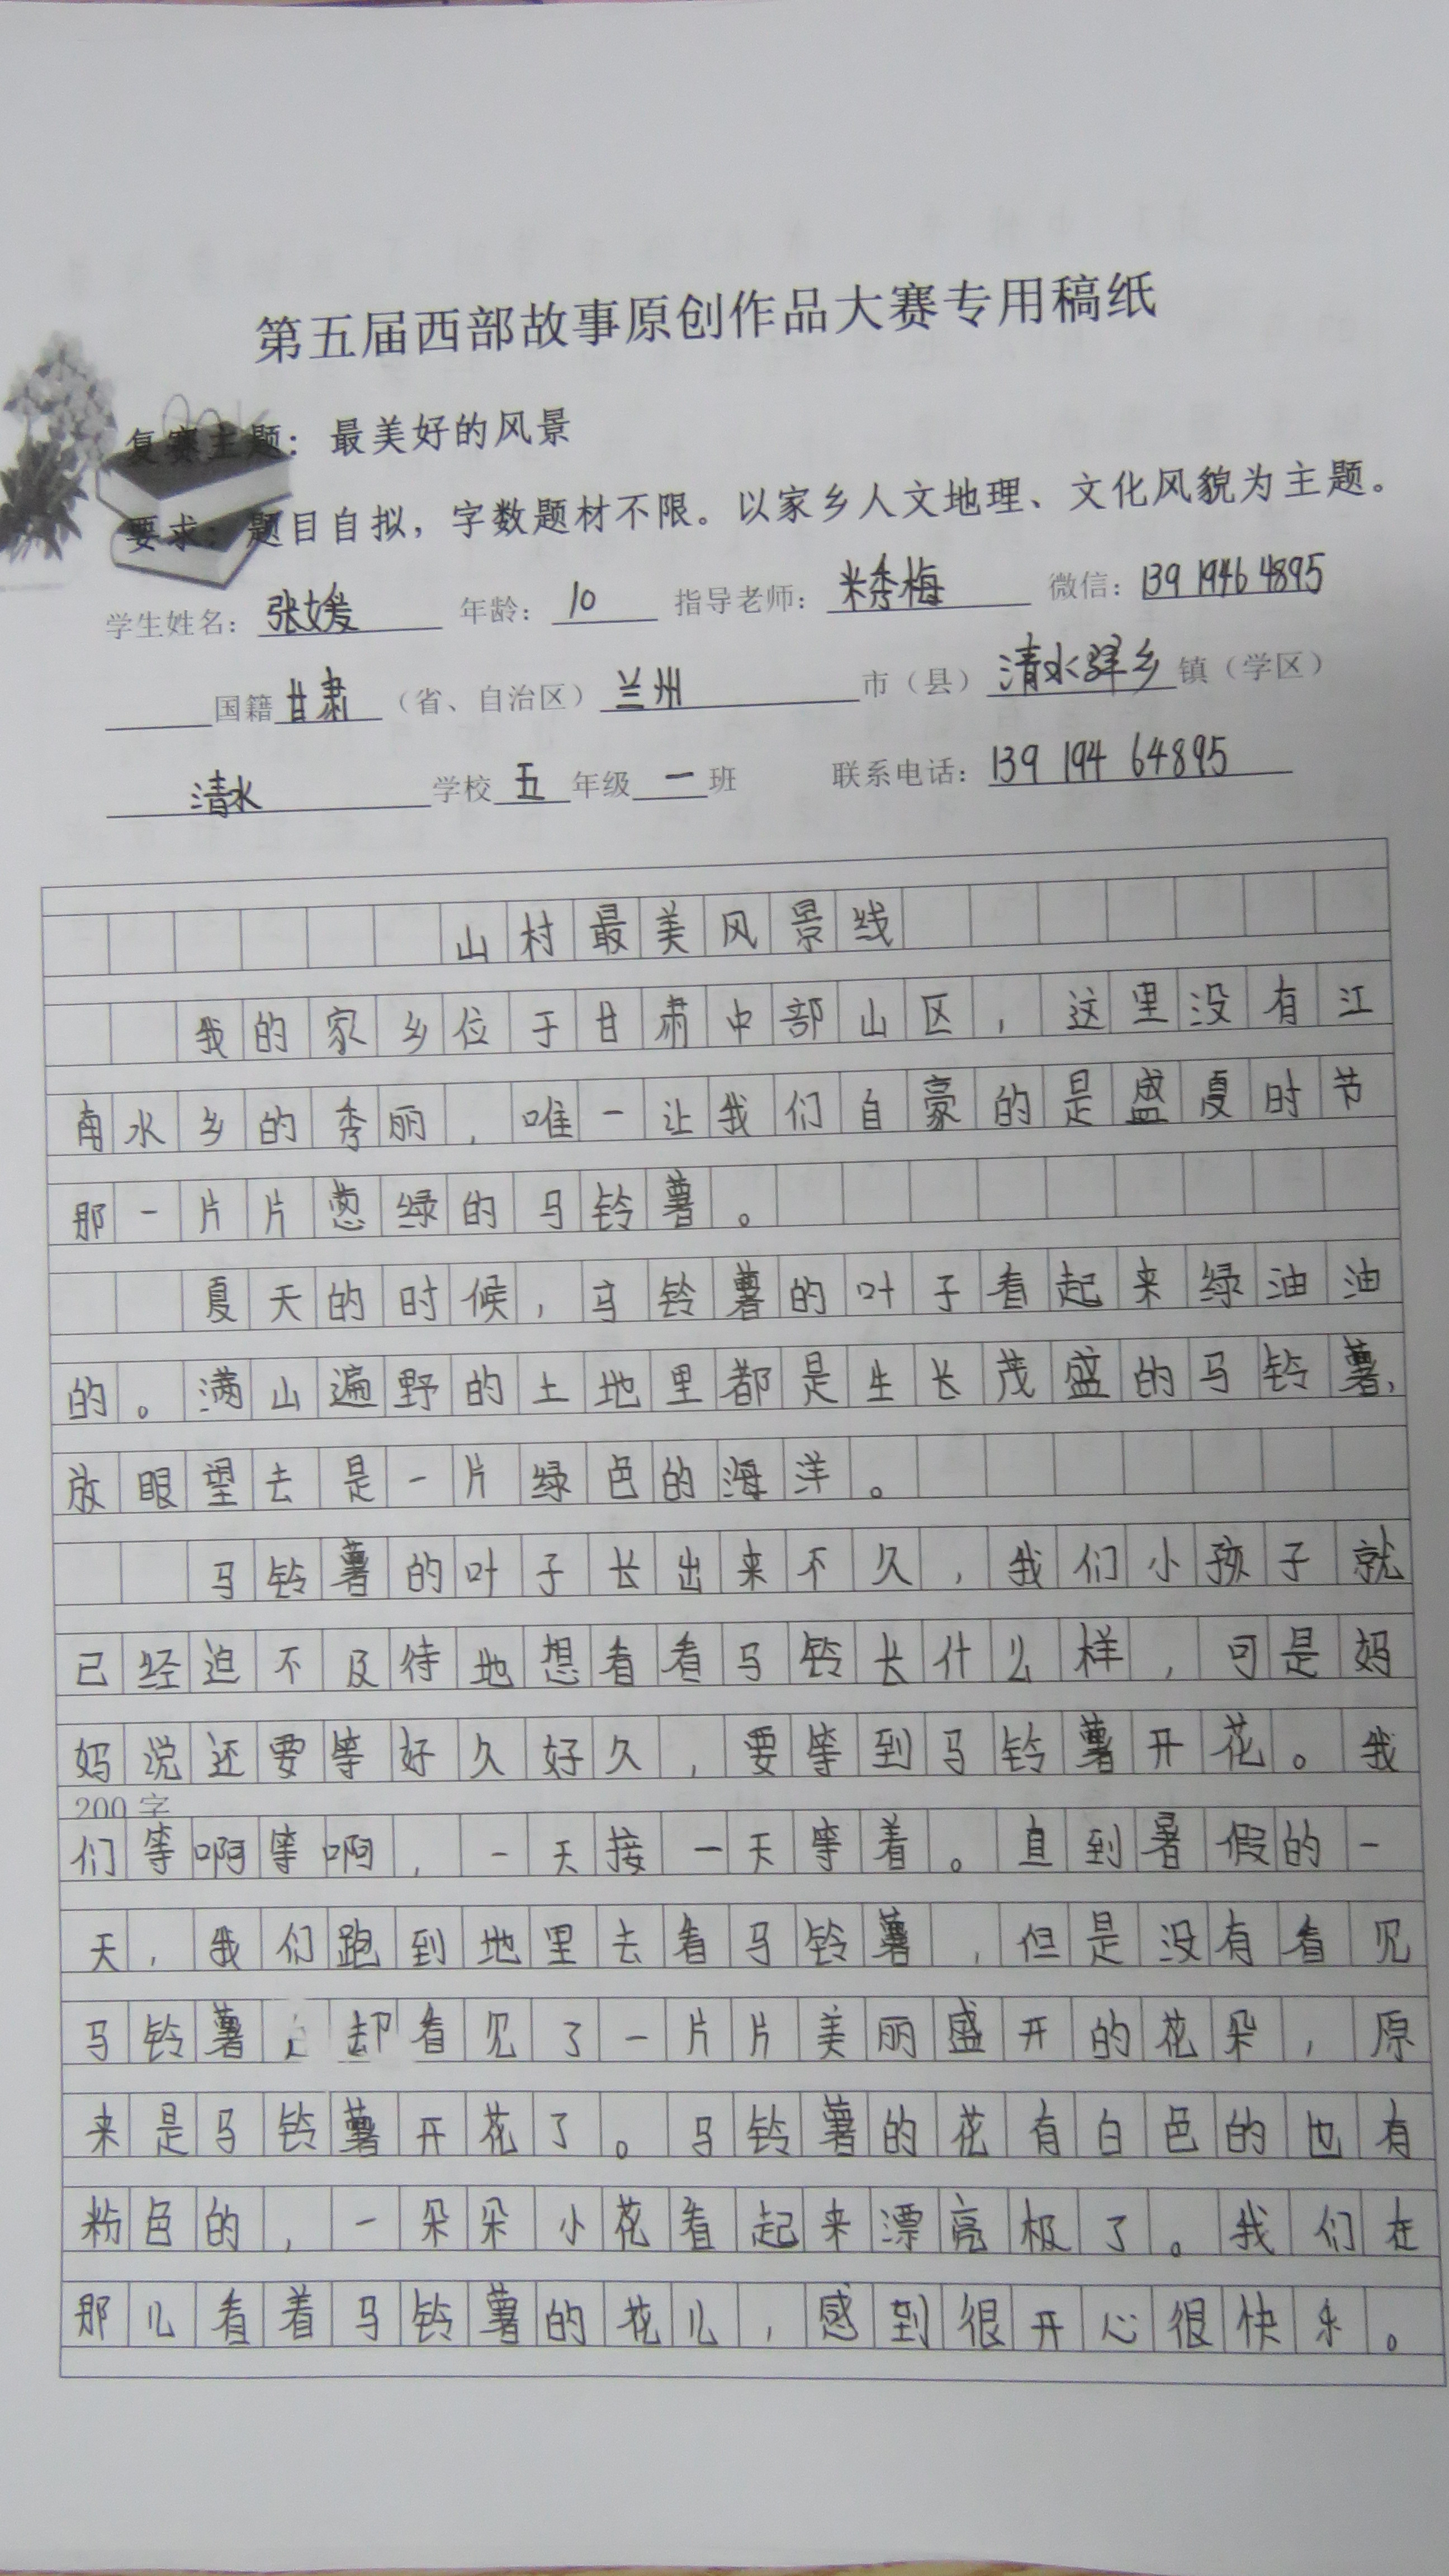 第五届西部故事原创作品大赛专用稿纸
复赛主题：最美好的风景
要求：题目自拟，字数题材不限。以家乡人文地理、文化风貌为主题。
学生姓名：张媛 年龄：10 指导老师：米秀梅 微信：139 1946 4895
国籍甘肃（省、自治区）兰州市（县）清水驿乡镇（学区）
清水学校五年级一班 联系电话：139 194 64895
山村最美风景线
我的家乡位于甘肃中部山区，这里没有江
南水乡的秀丽，唯一让我们自豪的是盛夏时节
那一片片葱绿的马铃薯。
夏天的时候，马铃薯的叶子看起来绿油油
的。满山遍野的土地里都是生长茂盛的马铃薯，
放眼望去是一片绿色的海洋。
马铃薯的叶子长出来不久，我们小孩子就
已经迫不及待地想看看马铃长什么样，可是妈
妈说还要等好久好久，要等到马铃薯开花。我
200字
们等啊等啊，一天接一天等着。直到暑假的一
天，我们跑到地里去看马铃薯，但是没有看见
马铃薯却看见了一片片美丽盛开的花朵，原
来是马铃薯开花了。马铃薯的花有白色的也有
粉色的，一朵朵小花看起来漂亮极了。我们在
那儿看着马铃薯的花儿，感到很开心很快乐。